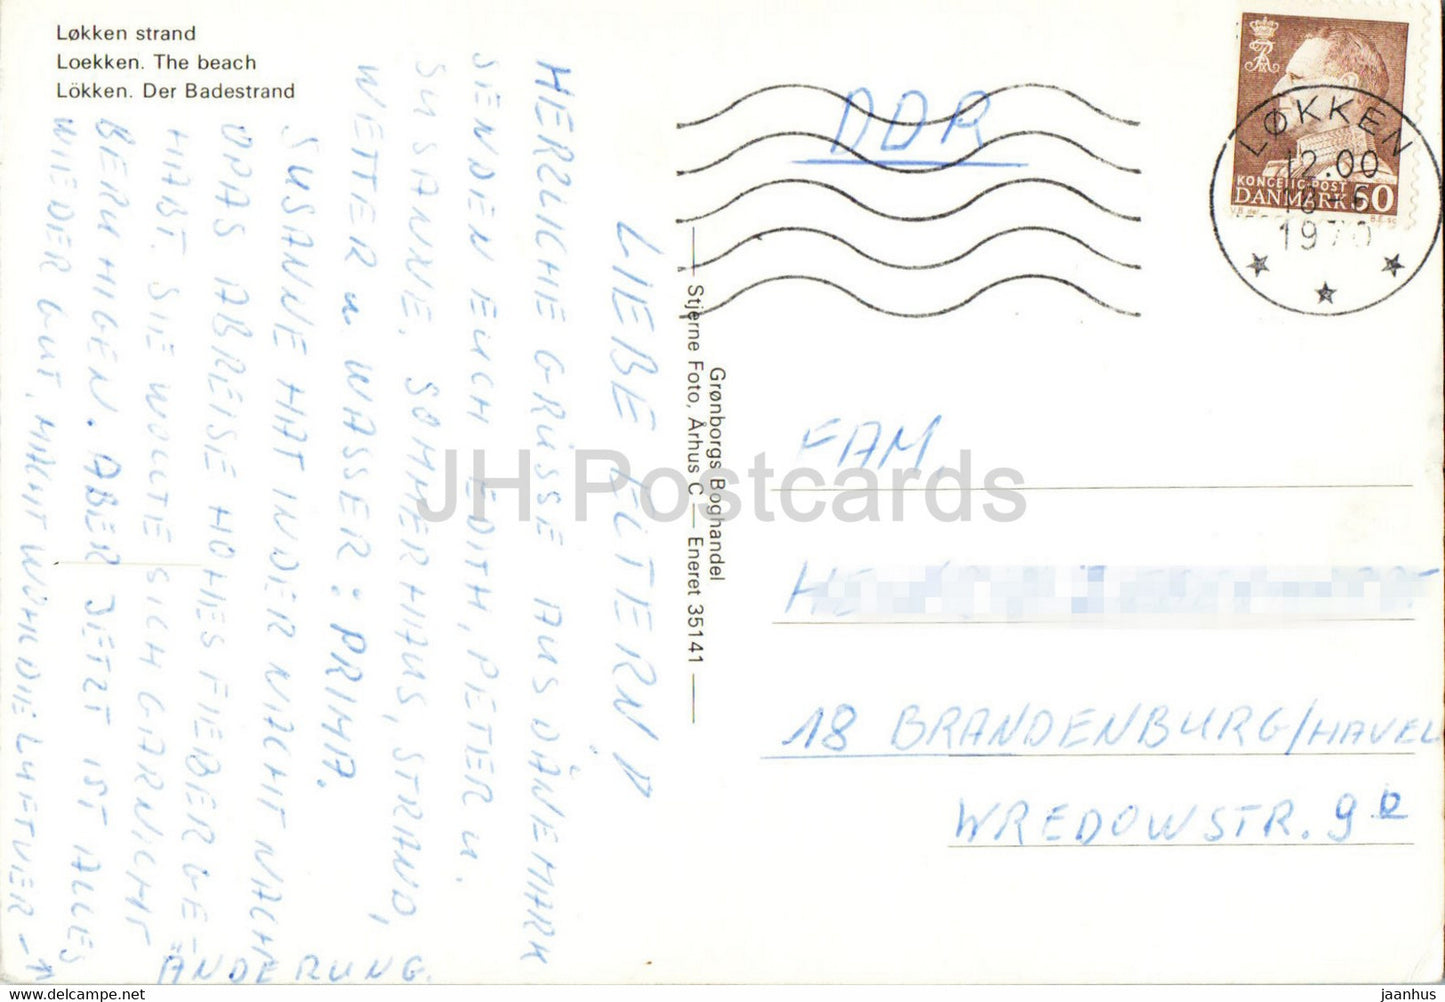 Løkken strand
Loekken. The beach
Lökken. Der Badestrand
LIEBE ELTERN!
HERZLICHE GRÜSSE AUS DÄNEMARK
SENDEN EUCH EDITH, PETER u.
SUSANNE. SOMMERHAUS, STRAND,
WETTER u. WASSER: PRIMA.
SUSANNE HAT IN DER NACHT NACH
OPAS ABREISE HOHES FIEBER GE-
HABT. SIE WOLLTE SICH GARNICHT
BERUHIGEN. ABER JETZT IST ALLES
WIEDER GUT, MACHT WOHL DIE LUFTVER-
ÄNDERUNG.
Grønborgs Boghandel
Stjerne Foto, Århus C — Eneret 35141
DDR
LØKKEN
12.00
1970
KONGELIG POST
DANMARK 60
FAM.
18 BRANDENBURG/HAVEL
WREDOWSTR. 9b
JH Postcards
www.delcampe.net
jaanhus